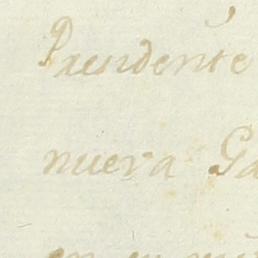 Presidente
nueva Ga
en su